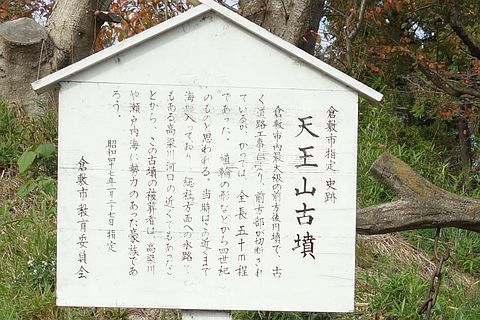 倉敷市指定 史跡
天王山古墳
倉敷市内最大級の前方後円墳で、古
く道路工事により、前方部が切断され
ているが、かつては、全長五十m程
であった。埴輪の形などから四世紀
のものと思われる。当時はこの近くまで
海が入っており、総社方面への水路で
もある高梁川河口の近くでもあったこ
とから、この古墳の被葬者は、高梁川
や瀬戸内海に勢力のあった豪族であ
ろう。
昭和四十七年二月二十七日指定
倉敷市教育委員会